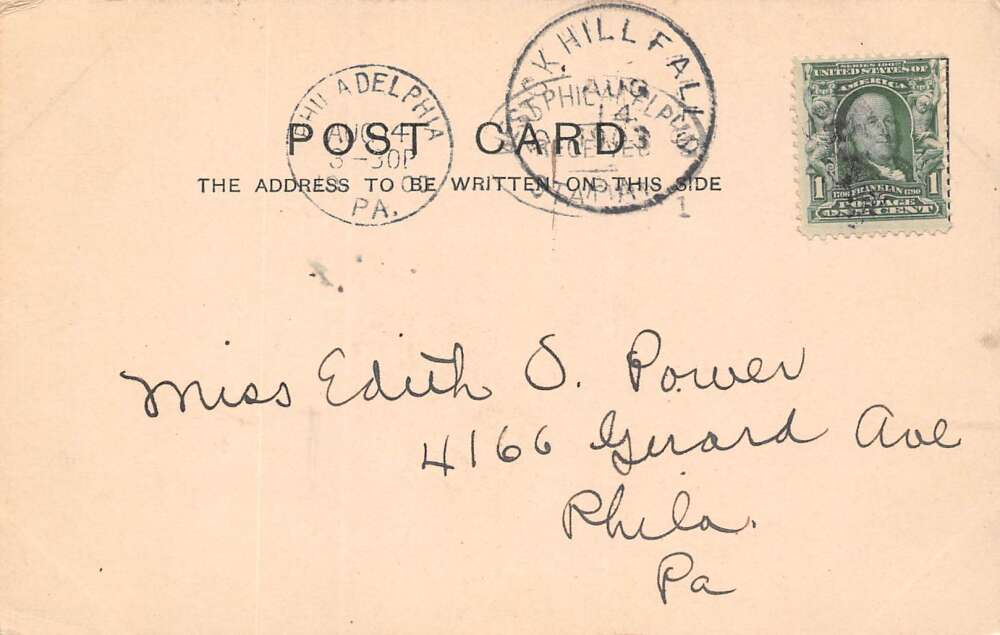 PHILADELPHIA
AUG 4
PA.
HILL FALLS
AUG
4
3
PHILADELPHIA
RECEIVED
1
POST CARD
THE ADDRESS TO BE WRITTEN ON THIS SIDE
SERIES 1902
UNITED STATES OF
AMERICA
1 1706 FRANKLIN 1790 1
POSTAGE
ONE CENT
Miss Edith S. Power
4166 Girard Ave
Phila.
Pa